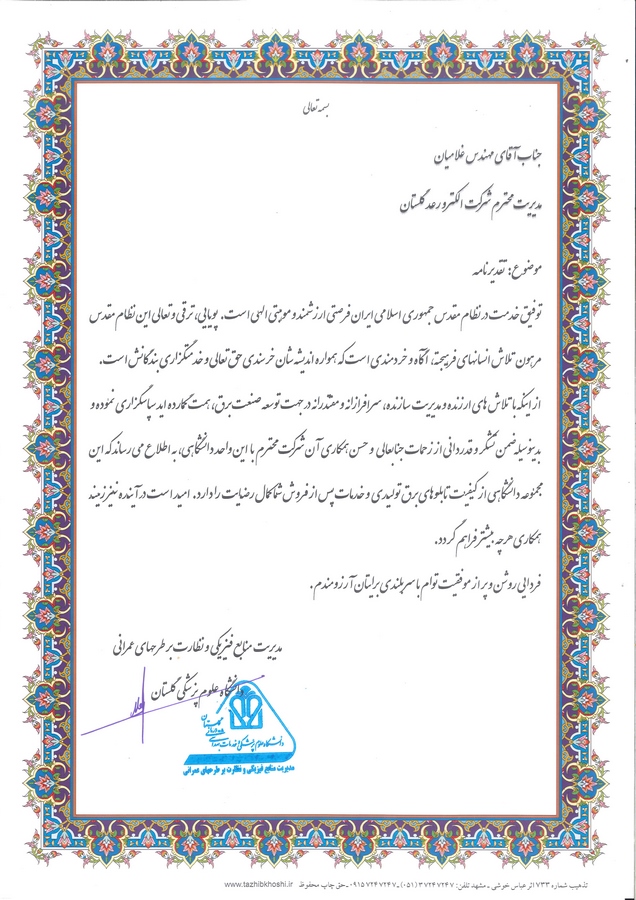 بسمه تعالی
جناب آقای مهندس غلامیان
مدیریت محترم شرکت الکترو رعد گلستان
موضوع: تقدیرنامه
توفیق خدمت در نظام مقدس جمهوری اسلامی ایران فرصتی ارزشمند و موهبتی الهی است. پویایی، ترقی و تعالی این نظام مقدس
مرهون تلاش انسانهای فرهیخته، آگاه و خردمندی است که همواره اندیشه شان خرسندی حق تعالی و خدمتگزاری بندگانش است.
از اینکه با تلاش های ارزنده و مدیریت سازنده، سرافرازانه و مقتدرانه در جهت توسعه صنعت برق، همت گمارده اید سپاسگزاری نموده و
بدینوسیله ضمن تشکر و قدردانی از زحمات جنابعالی و حسن همکاری آن شرکت محترم با این واحد دانشگاهی، به اطلاع می رساند که این
مجموعه دانشگاهی از کیفیت تابلوهای برق تولیدی و خدمات پس از فروش شما کمال رضایت را دارد. امید است در آینده نیز زمینه
همکاری هرچه بیشتر فراهم گردد.
فردایی روشن و پر از موفقیت توام با سربلندی برایتان آرزومندم.
مدیریت منابع فیزیکی و نظارت بر طرحهای عمرانی
دانشگاه علوم پزشکی گلستان
دانشگاه علوم پزشکی و خدمات بهداشتی
مدیریت منابع فیزیکی و نظارت بر طرحهای عمرانی
تذهیب شماره ۷۳۳ اثر عباس خوشی ـ مشهد تلفن: ۳۷۲۴۷۲۴۷ (۰۵۱) ـ ۰۹۱۵۷۲۴۷۲۴۷ ـ حق چاپ محفوظ www.tazhibkhoshi.ir